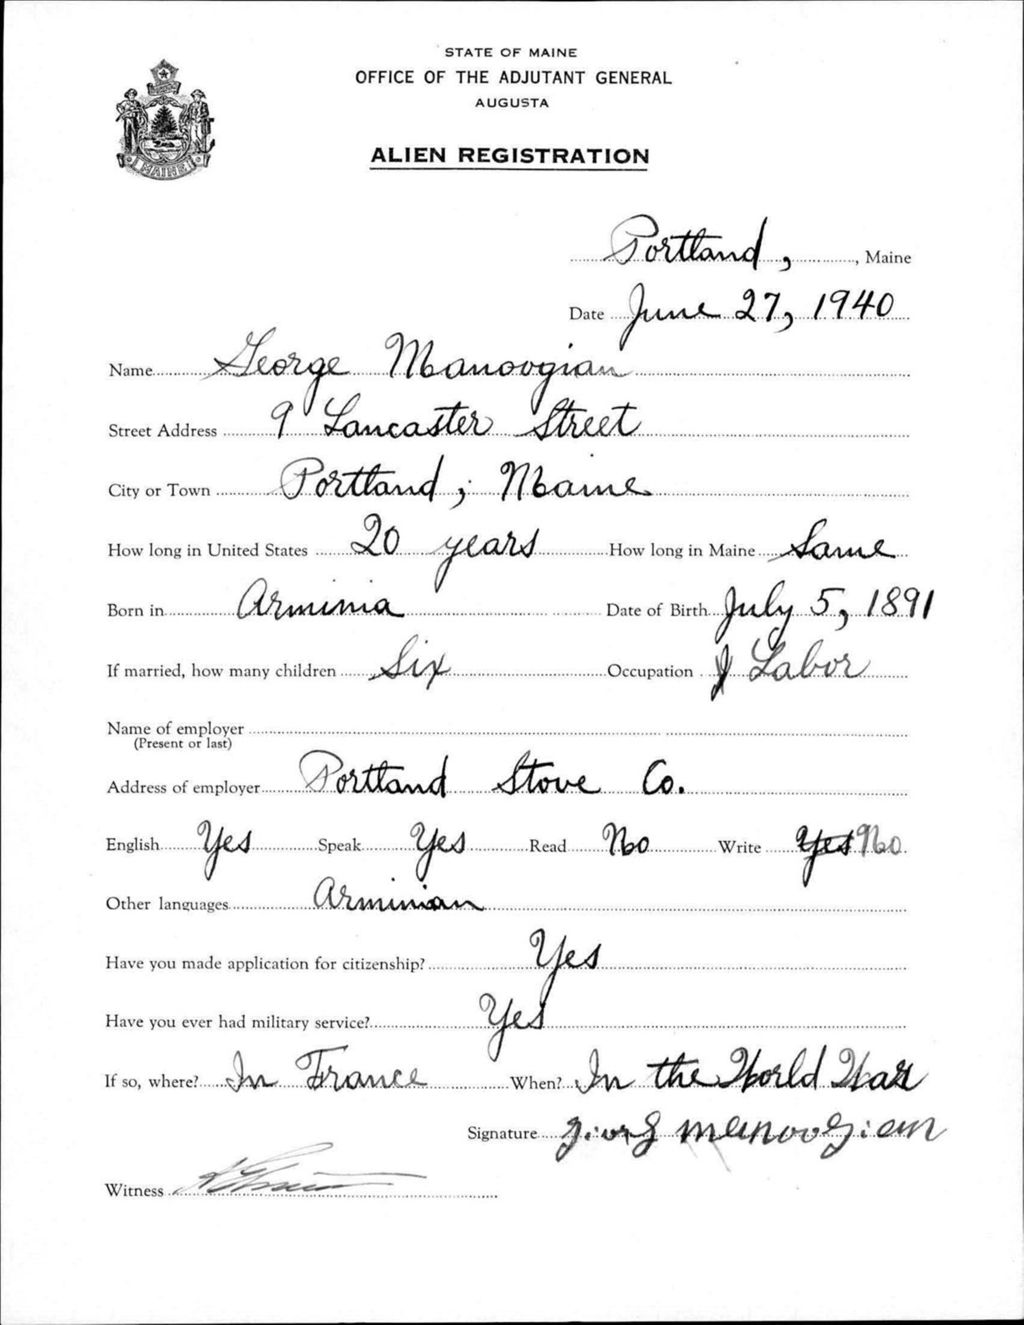 STATE OF MAINE
OFFICE OF THE ADJUTANT GENERAL
AUGUSTA
ALIEN REGISTRATION
MAINE
Portland, , Maine
Date June 27, 1940
Name George Manoogian
Street Address 9 Lancaster Street
City or Town Portland, Maine
How long in United States 20 years How long in Maine Same
Born in Arminia Date of Birth July 5, 1891
If married, how many children Six Occupation Labor
Name of employer
(Present or last)
Address of employer Portland Stove Co.
English Yes Speak Yes Read No Write Yes No
Other languages Arminian
Have you made application for citizenship? Yes
Have you ever had military service? Yes
If so, where? In France When? In the World War
Signature giorg manoogian
Witness